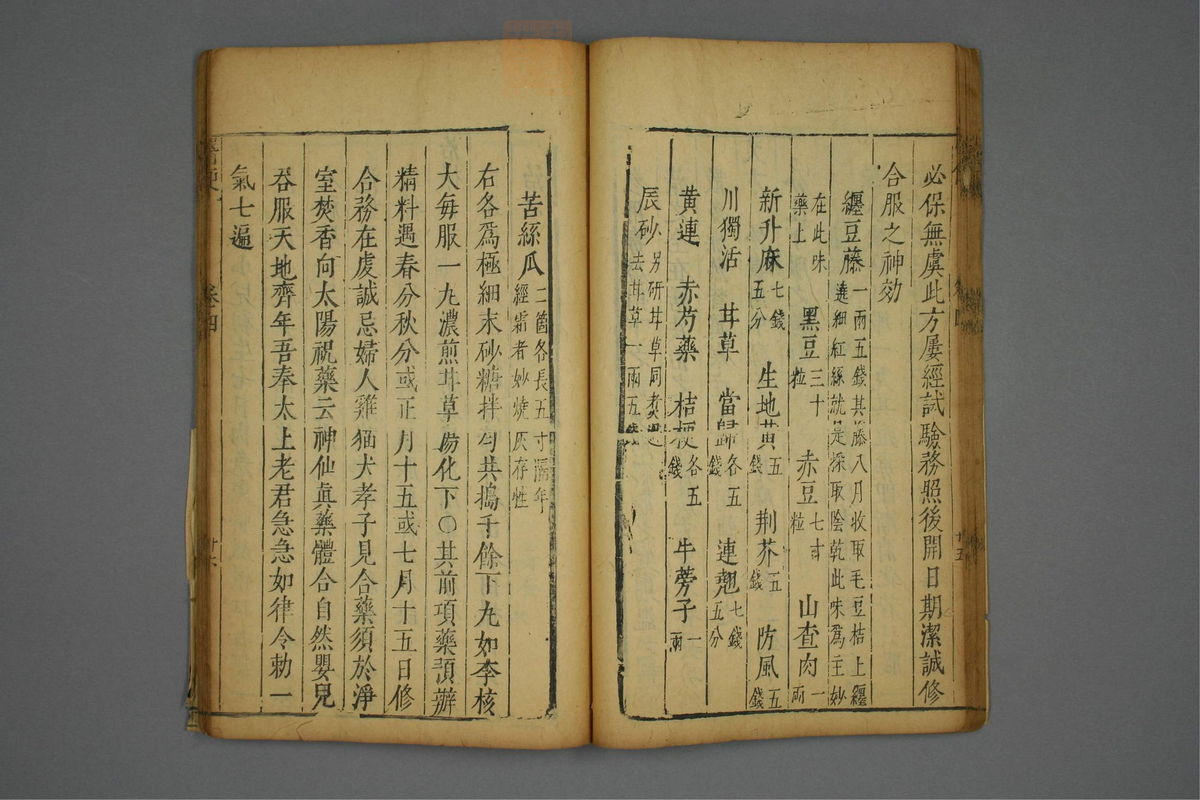 必保無虞此方屢經試驗務照後開日期潔誠修
合服之神効
纏豆藤一兩五錢其藤八月收取毛豆梏上纏
遶細紅絲就是採取陰乾此味爲主妙
在此味
藥上 黑豆三十
粒 赤豆七十
粒 山査肉一
兩
新升麻七錢
五分 生地黄五
錢 荆芥五
錢 防風五
錢
川獨活 甘草 當歸各五
錢 連翹七錢
五分
黄連 赤芍藥 桔梗各五
錢 牛蒡子一
兩
辰砂另研甘草同煮過
去甘草一兩五錢
苦絲瓜二箇各長五寸隔年
經霜者妙燒灰存性
右各爲極細末砂糖拌勻共搗千餘下丸如李核
大每服一丸濃煎甘草湯化下○其前項藥預辦
精料遇春分秋分或正月十五或七月十五日修
合務在虔誠忌婦人雞猫犬孝子見合藥須於淨
室焚香向太陽祝藥云神仙眞藥體合自然嬰兒
吞服天地齊年吾奉太上老君急急如律令勅一
氣七遍
卷四